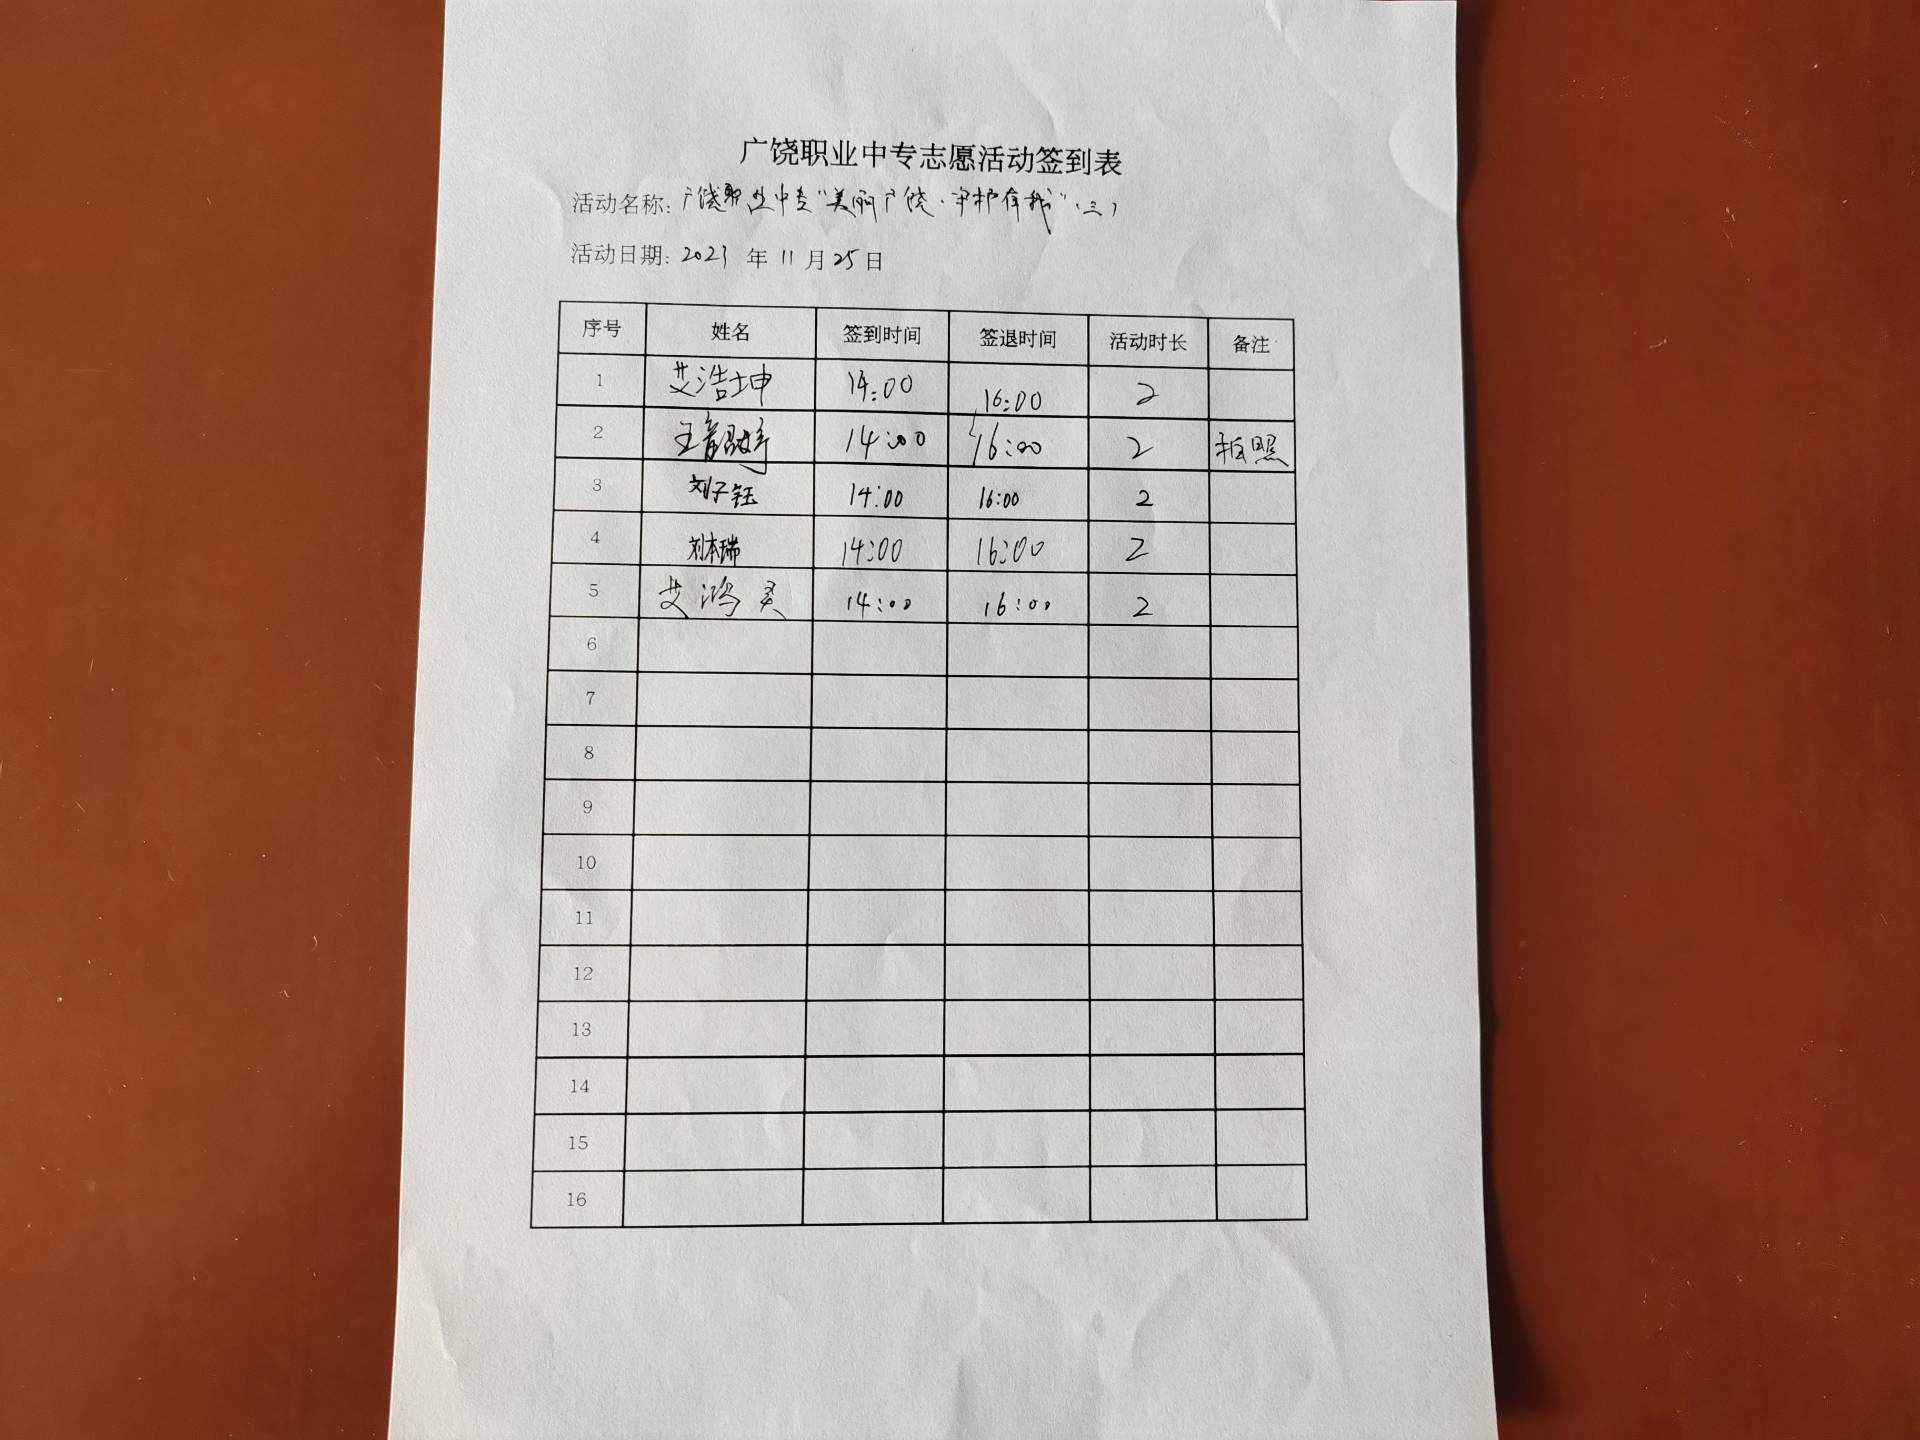 广饶职业中专志愿活动签到表
活动名称: 广饶职业中专“美丽广饶·守护有我”(三)
活动日期: 2023 年 11 月 25 日
序号 姓名 签到时间 签退时间 活动时长 备注
1 艾浩坤 14:00 16:00 2
2 王 14:00 16:00 2 拍照
3 刘子钰 14:00 16:00 2
4 刘本瑞 14:00 16:00 2
5 艾鸿 14:00 16:00 2
6
7
8
9
10
11
12
13
14
15
16